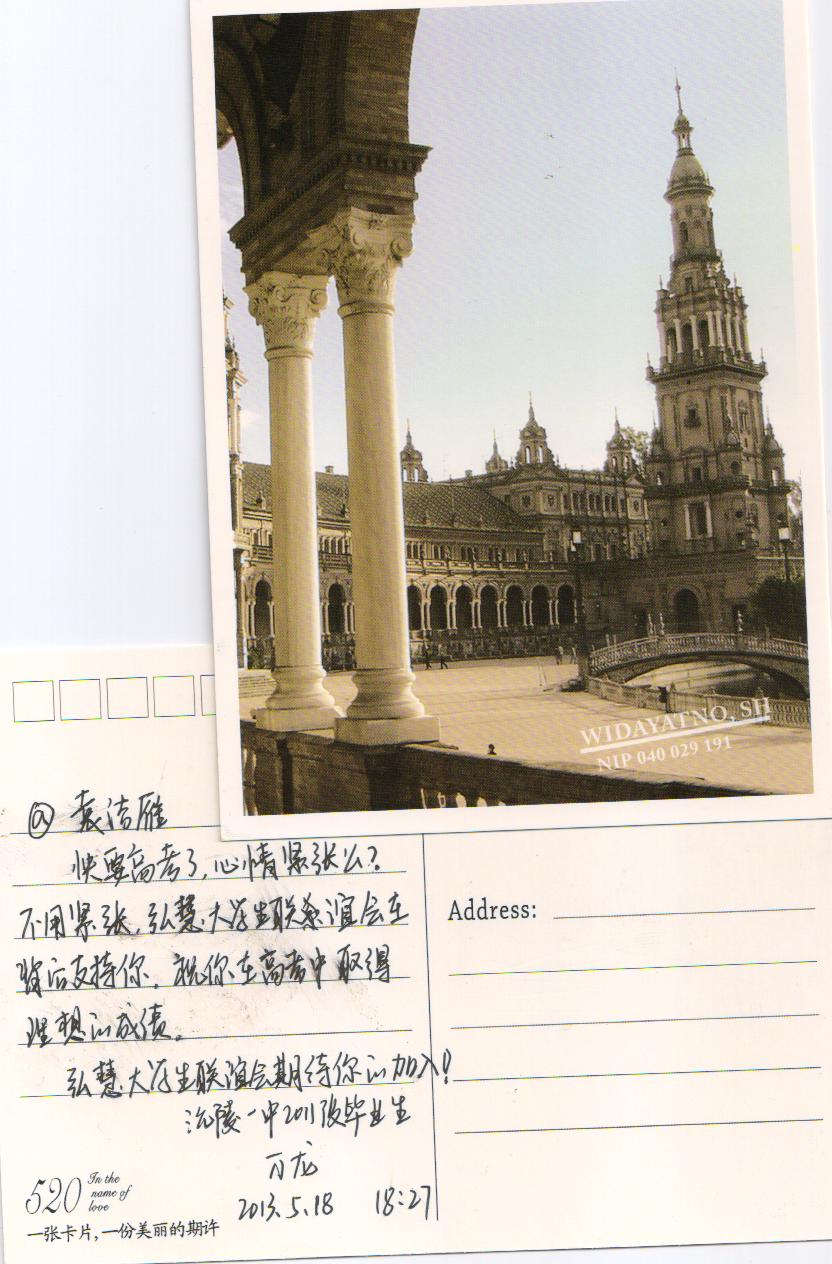 WIDAYATNO, SH
NIP 040 029 191
@ 袁洁雁
快要高考了,心情紧张么?
不用紧张,弘慧大学生联系谊会在
背后支持你。祝你在高考中取得
理想的成绩。
弘慧大学生联谊会期待你的加入!
沅陵一中2011级毕业生
万龙
2013.5.18 18:27
Address:
520 In the
name of
love
一张卡片,一份美丽的期许